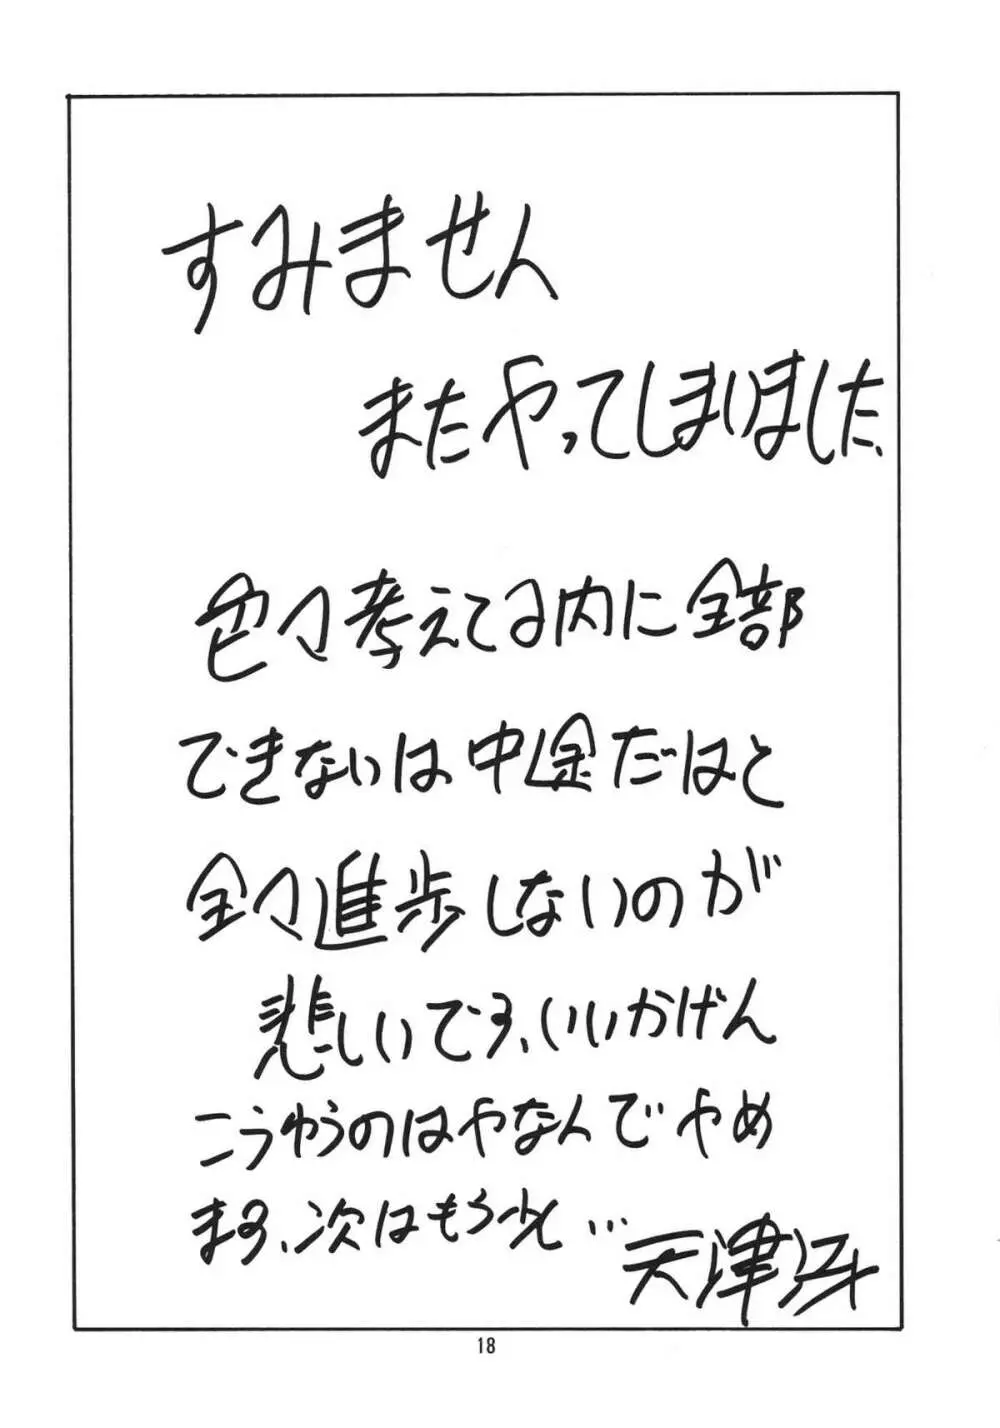 すみません
またやってしまいました、
色々考えてる内に全部
できないは中途だはと
全々進歩しないのが
悲しいです、いいかげん
こうゆうのはやなんでやめ
ます、次はもう少し…
天津冴
18